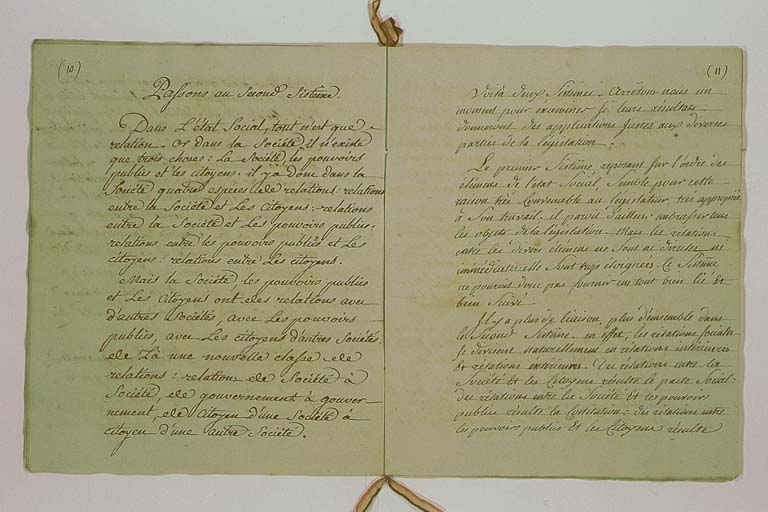 (10)
Passons au Second Sistême.
Dans L'état Social, tout n'est que
relation or dans la Société, il n'existe
que trois choses: La Société, les pouvoirs
publics et les citoyens. il y a donc dans la
Société quatre espèces de relations: relations
entre la Société et Les Citoyens: relations
entre la Société et Les pouvoirs publics.
relations entre les pouvoirs publics et Les
citoyens: relations entre Les citoyens.
Mais la Société, les pouvoirs publics
et Les Citoyens ont des relations avec
d'autres Sociétés, avec Les pouvoirs
publics, avec Les citoyens d'autres Sociétés.
de Là une nouvelle classe de
relations: relations de Société à
Société, de gouvernement à gouver-
nement, de Citoyen d'une Société à
citoyen d'une autre Société.
(11)
Voilà deux Sistêmes. Arrêtons nous un
moment pour examiner si leurs résultats
donneront des applications justes aux diverses
parties de la législation.
Le premier Sistême, reposant sur l'ordre des
élémens de l'état Social, Semble pour cette
raison très Convenable au législateur, très approprié
à Son travail. il paroit d'ailleurs embrasser tous
les objets de la législature. Mais les relations
entre les divers élémens ne Sont ni directes ni
immédiates: elles Sont trop éloignées. Ce Sistême
ne pouvait donc pas fournir un tout bien lié et
bien Suivi.
Il y a plus de liaison, plus d'ensemble dans
le Second Sistême. en effet, les relations Sociales
se divisent naturellement en relations intérieures
et relations extérieures. Des relations entre la
Société et les Citoyens résulte le pacte Social:
des relations entre la Société et les pouvoirs
publics résulte la Constitution: des relations entre
les pouvoirs publics et les Citoyens résulte